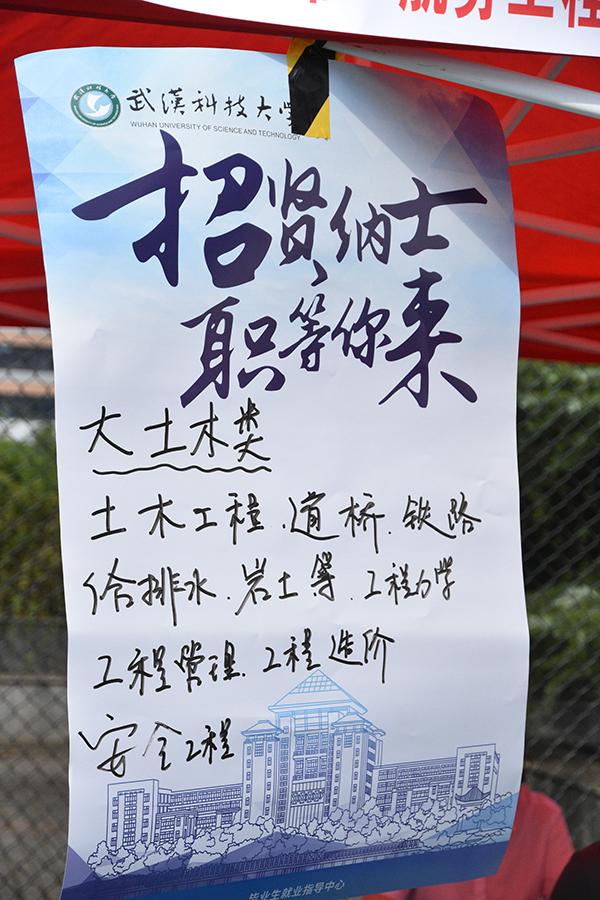 航务工程
武漢科技大学
WUHAN UNIVERSITY OF SCIENCE AND TECHNOLOGY
招贤纳士
职等你来
大土木类
土木工程、道桥、铁路
给排水、岩土等、工程力学
工程管理、工程造价
安全工程
毕业生就业指导中心